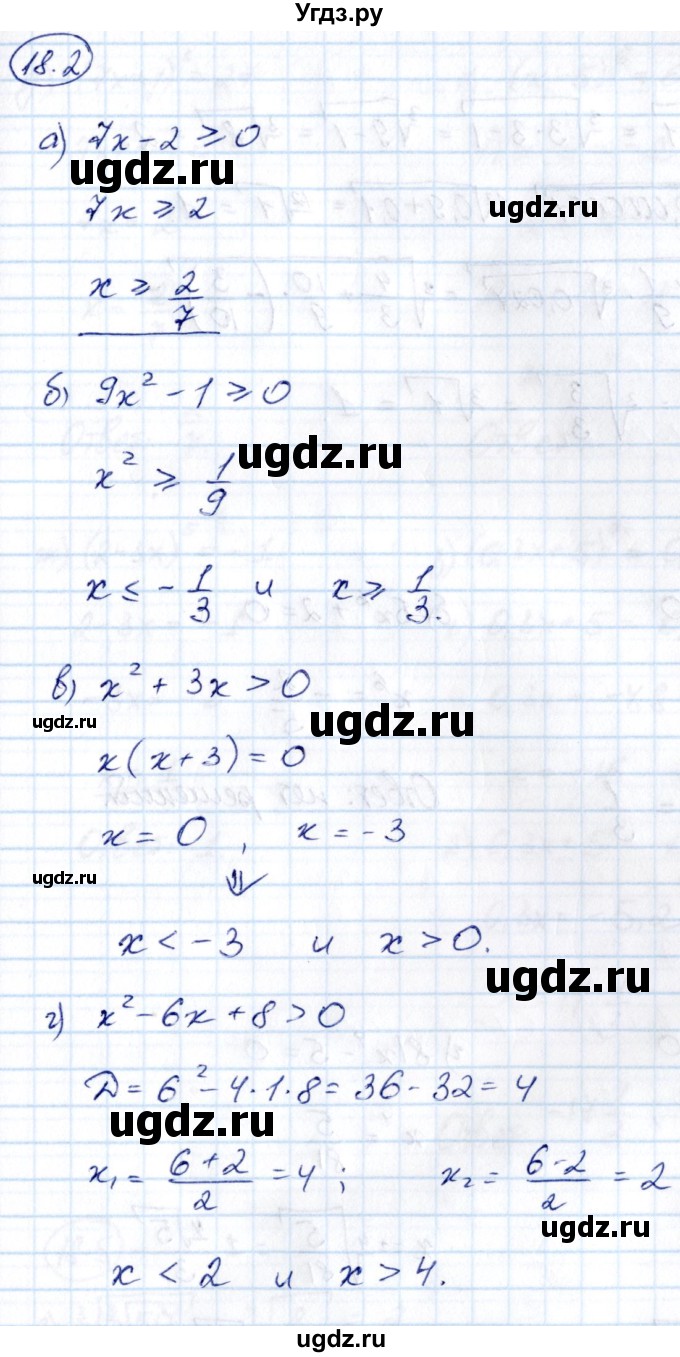 Угдз.ру
18.2
а) 7x - 2 ⩾ 0
ugdz.ru
7x ⩾ 2
ugdz.ru
x ⩾ 2/7
б) 9x² - 1 ⩾ 0
ugdz.ru
x² ⩾ 1/9
x ≤ - 1/3 и x ⩾ 1/3.
в) x² + 3x > 0
ugdz.ru
ugdz.ru
x(x+3) = 0
x = 0, x = -3
ugdz.ru
⇓
x < -3 и x > 0.
ugdz.ru
г) x² - 6x + 8 > 0
D = 6² - 4·1·8 = 36 - 32 = 4
ugdz.ru
x₁ = (6+2)/2 = 4; x₂ = (6-2)/2 = 2
ugdz.ru
x < 2 и x > 4.
ugdz.ru